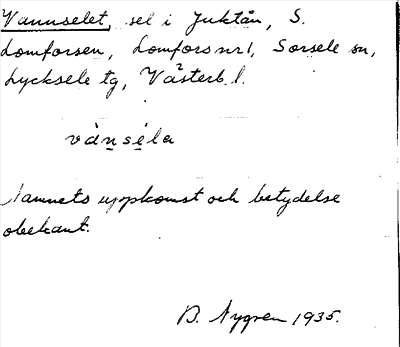 Vannselet, sel i Juktån, S.
Lomforsen, Lomfors nr 1, Sorsele sn,
Lycksele tg, Västerb. l.
vȧnsėla
Namnets uppkomst och betydelse
obekant.
B. Nygren 1935.